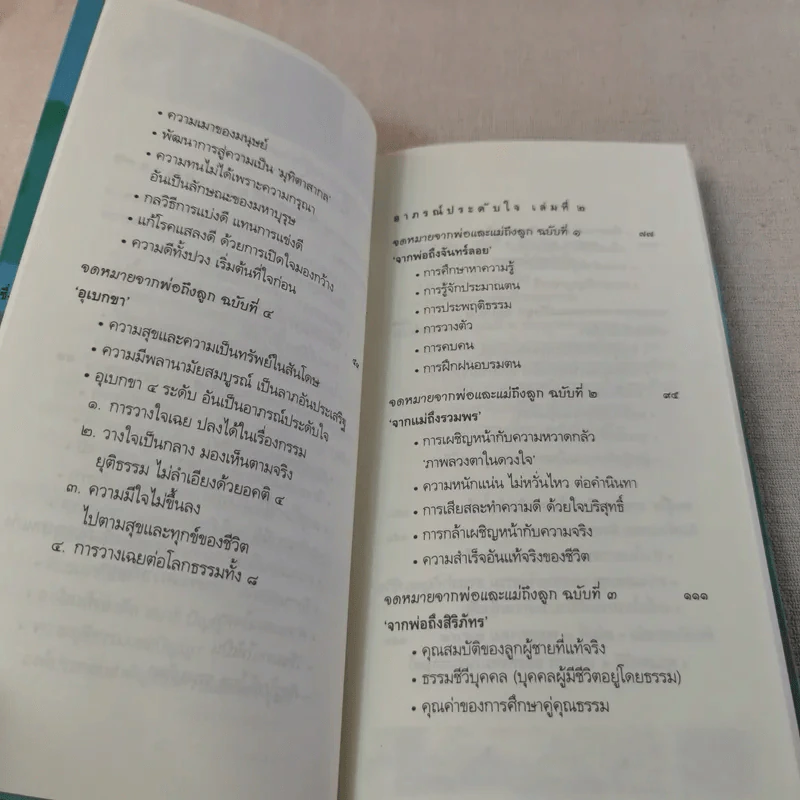 • ความเมาของมนุษย์
• พัฒนาการสู่ความเป็น 'มุทิตาสากล'
• ความทนไม่ได้เพราะความกรุณา
อันเป็นลักษณะของมหาบุรุษ
• กลวิธีการแบ่งดี แทนการแข่งดี
• แก้โรคแสลงดี ด้วยการเปิดใจมองกว้าง
• ความดีทั้งปวง เริ่มต้นที่ใจก่อน
จดหมายจากพ่อถึงลูก ฉบับที่ ๔
'อุเบกขา'
• ความสุขและความเป็นทรัพย์ในสันโดษ
• ความมีพลานามัยสมบูรณ์ เป็นลาภอันประเสริฐ
• อุเบกขา ๔ ระดับ อันเป็นอาภรณ์ประดับใจ
๑. การวางใจเฉย ปลงได้ในเรื่องกรรม
๒. วางใจเป็นกลาง มองเห็นตามจริง
ยุติธรรม ไม่ลำเอียงด้วยอคติ ๔
๓. ความมีใจไม่ขึ้นลง
ไปตามสุขและทุกข์ของชีวิต
๔. การวางเฉยต่อโลกธรรมทั้ง ๘
อาภรณ์ประดับใจ เล่มที่ ๒
จดหมายจากพ่อและแม่ถึงลูก ฉบับที่ ๑ ๗๗
'จากพ่อถึงจันทร์ลอย'
• การศึกษาหาความรู้
• การรู้จักประมาณตน
• การประพฤติธรรม
• การวางตัว
• การคบคน
• การฝึกฝนอบรมตน
จดหมายจากพ่อและแม่ถึงลูก ฉบับที่ ๒ ๙๕
'จากแม่ถึงรวมพร'
• การเผชิญหน้ากับความหวาดกลัว
'ภาพลวงตาในดวงใจ'
• ความหนักแน่น ไม่หวั่นไหว ต่อคำนินทา
• การเสียสละทำความดี ด้วยใจบริสุทธิ์
• การกล้าเผชิญหน้ากับความจริง
• ความสำเร็จอันแท้จริงของชีวิต
จดหมายจากพ่อและแม่ถึงลูก ฉบับที่ ๓ ๑๑๑
'จากพ่อถึงสิริภัทร'
• คุณสมบัติของลูกผู้ชายที่แท้จริง
• ธรรมชีวีบุคคล (บุคคลผู้มีชีวิตอยู่โดยธรรม)
• คุณค่าของการศึกษาคู่คุณธรรม